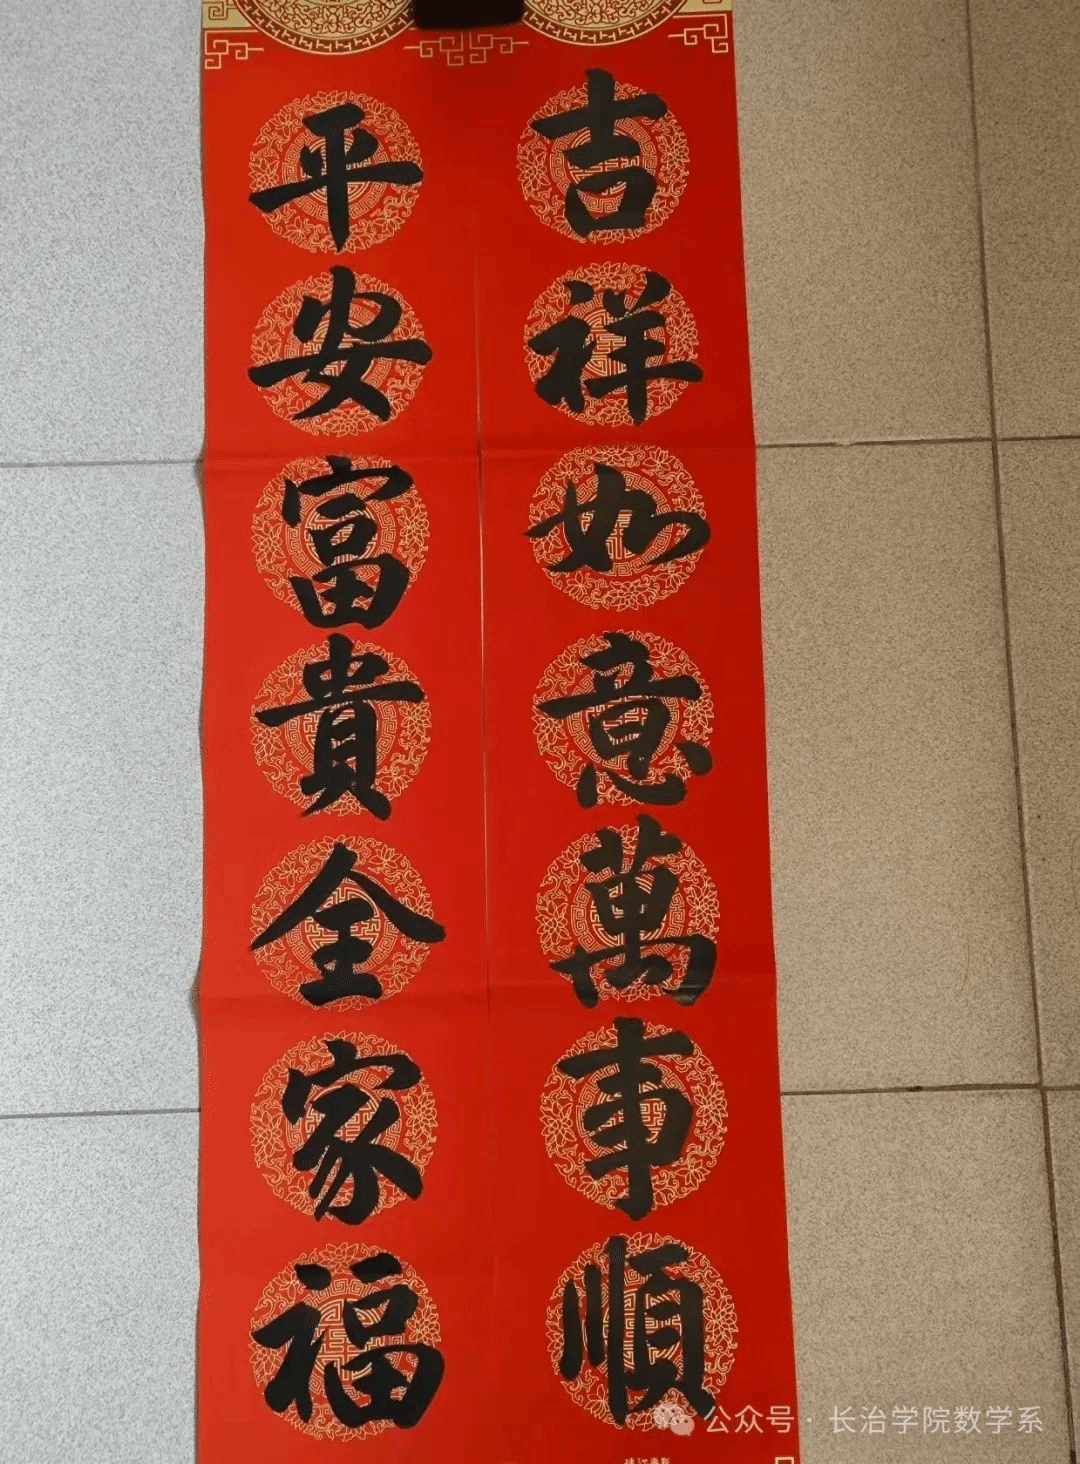 吉祥如意萬事順
平安富貴全家福
公众号·长治学院数学系